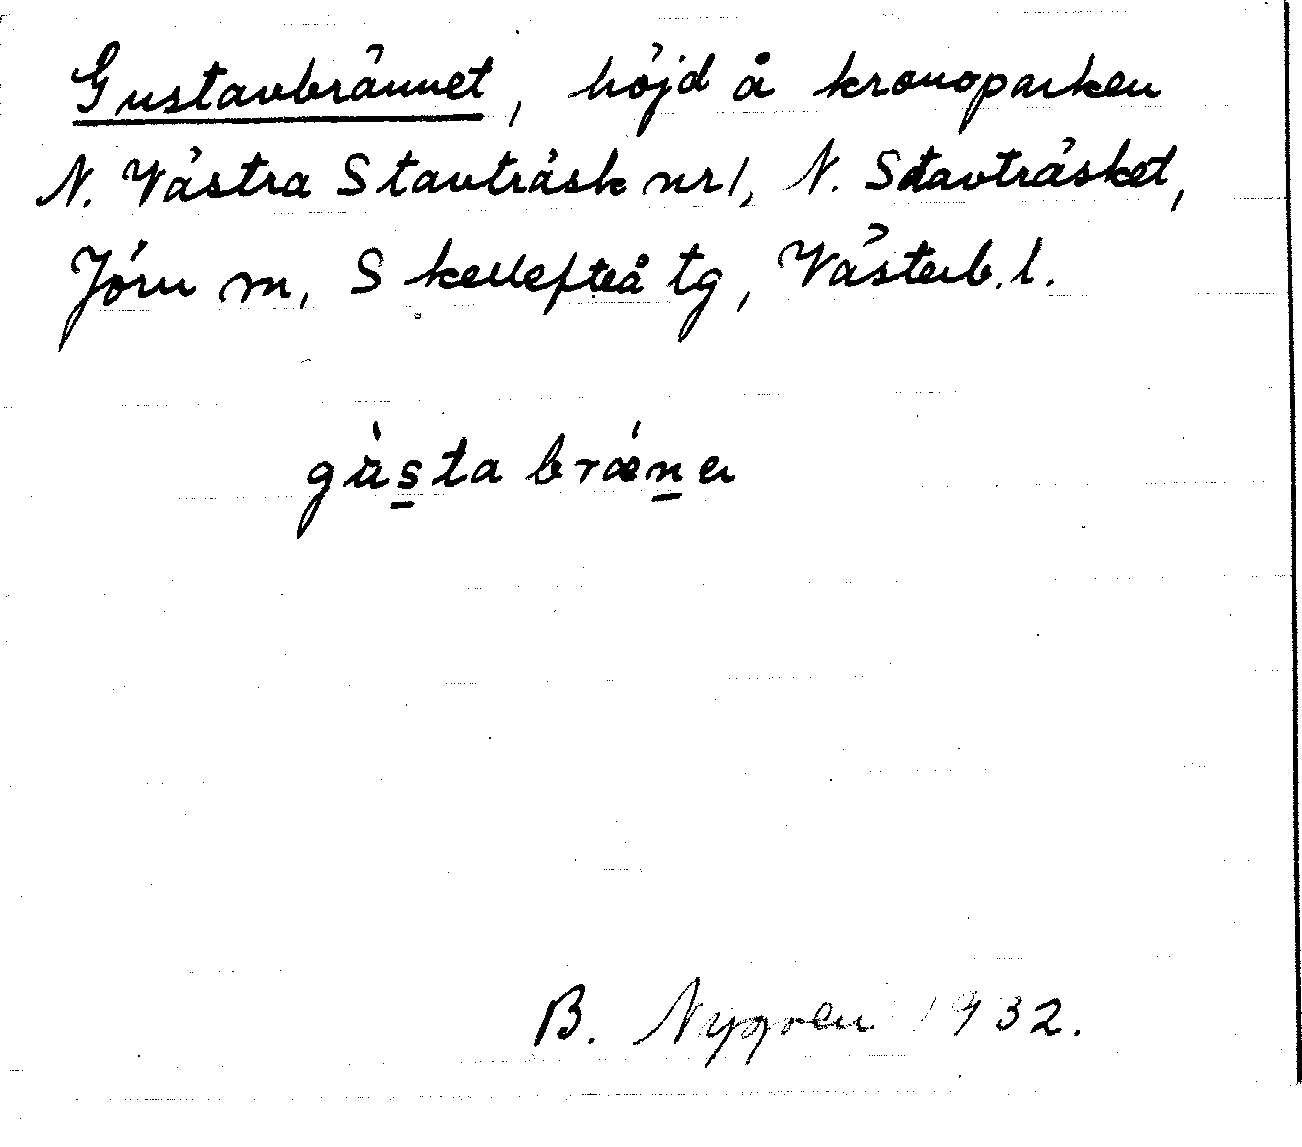 Gustavbrännet, höjd å kronoparken
N. Västra Stavträsk nr 1, N. Stavträsket,
Jörn sn, Skellefteå tg, Västerb. l.
gùsta brǽner
B. Nygren 1932.